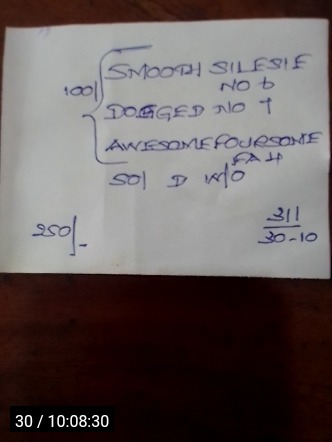 100/
SMOOTH SILESIE
NO 6
DOGGED NO 1
AWESOMEFOURSOME
50/ D W/O
250/-
311
30-10
30 / 10:08:30